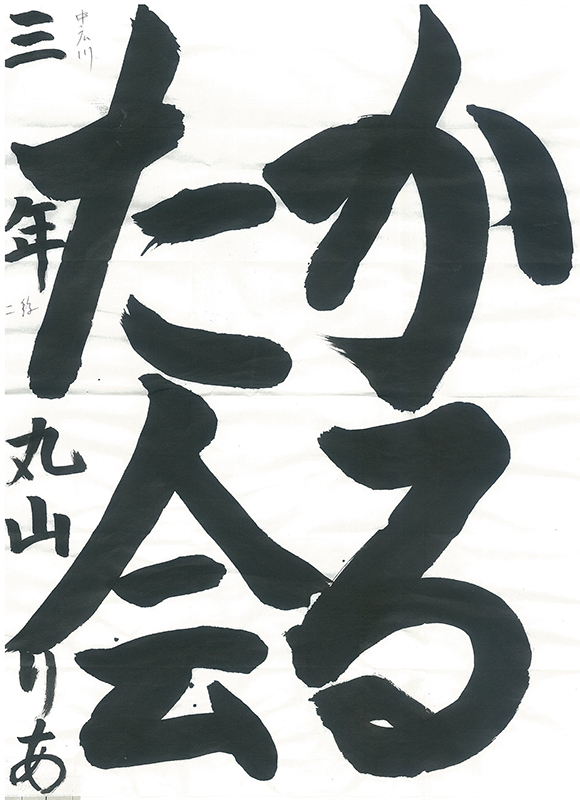 かる
た会
三年 丸山りあ
中広川